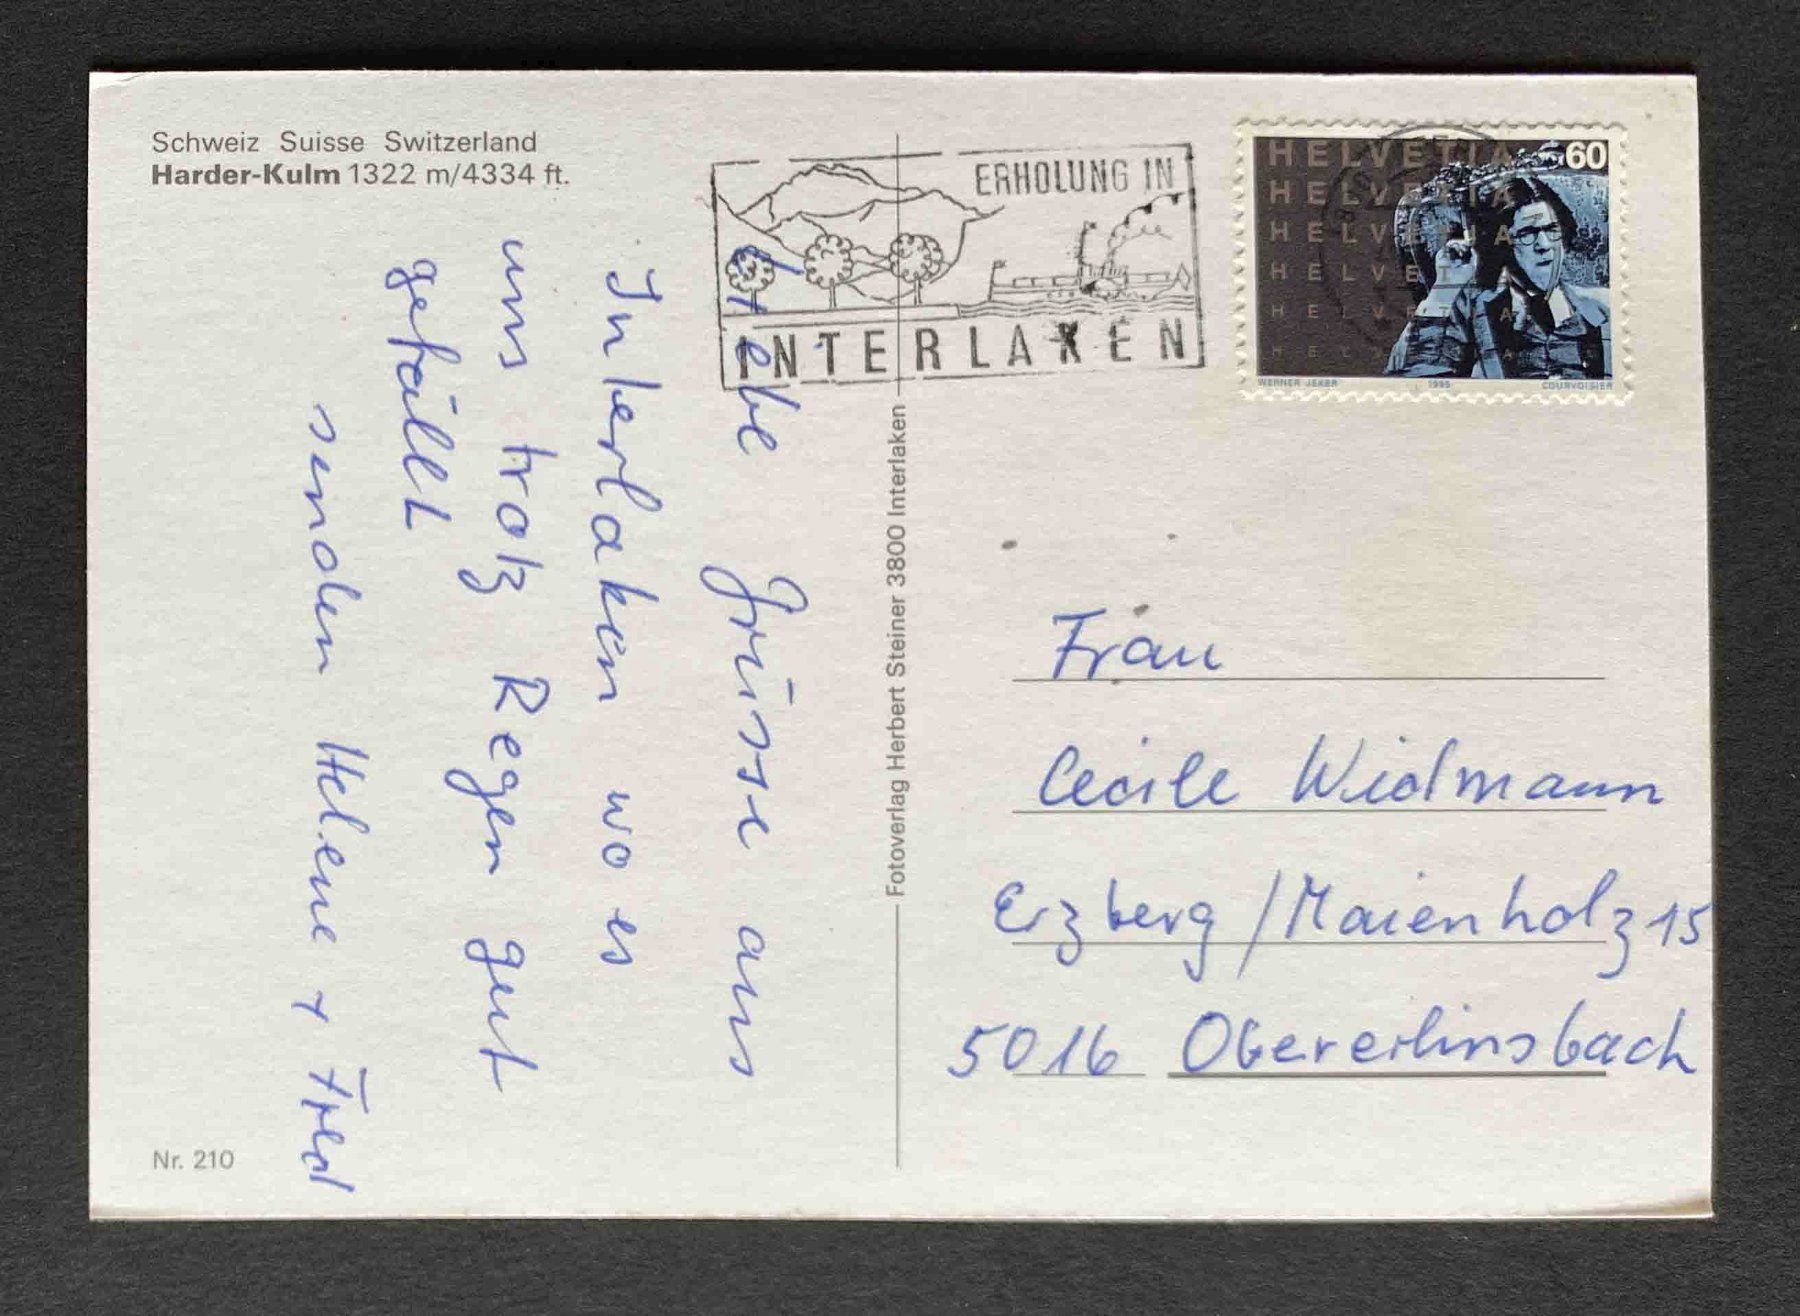 Schweiz Suisse Switzerland
Harder-Kulm 1322 m/4334 ft.
Liebe Grüsse aus
Interlaken wo es
uns trotz Regen gut
gefällt
senden Helene + Fred
Nr. 210
Fotoverlag Herbert Steiner 3800 Interlaken
ERHOLUNG IN
INTERLAKEN
HELVETIA 60
HELVETIA
HELVETIA
HELVETIA
HELVETIA
HELVETIA
WERNER JEKER 1995 COURVOISIER
Frau
Cecile Widmann
Erzberg / Maienholz 15
5016 Obererlinsbach